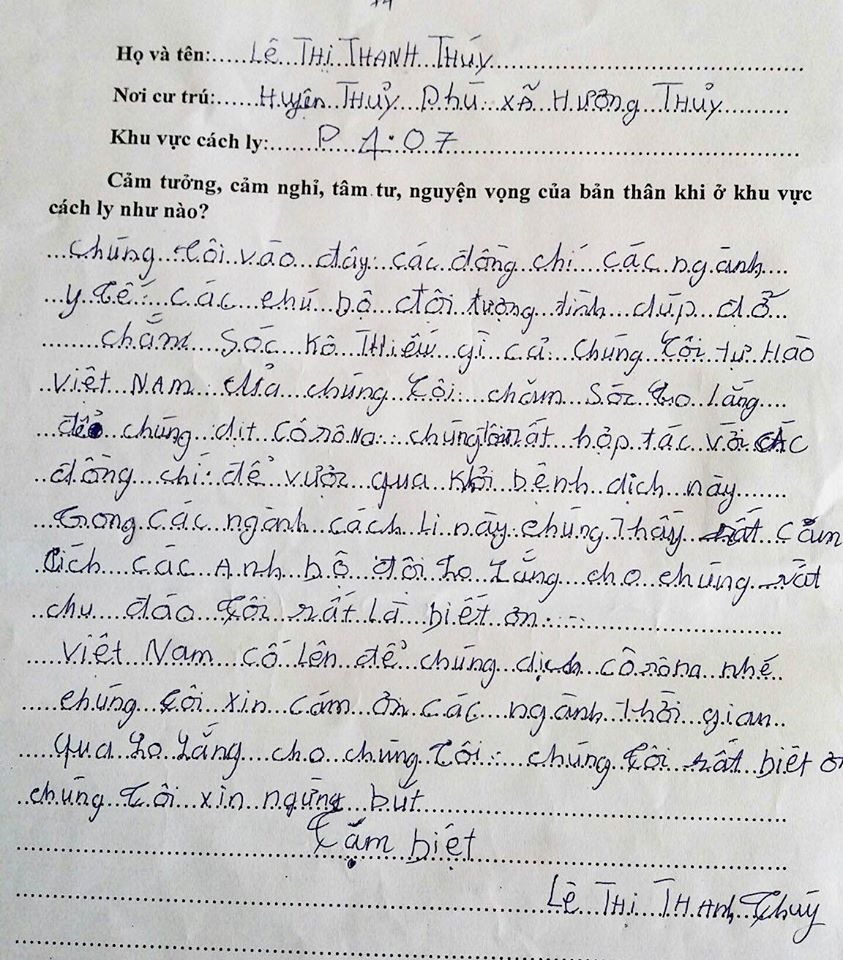 Họ và tên:.....LÊ THỊ THANH THÚY
Nơi cư trú:.....Huyện THUỶ PHÙ XÃ HƯƠNG THUỶ
Khu vực cách ly:.....P 1.07
Cảm tưởng, cảm nghỉ, tâm tư, nguyện vọng của bản thân khi ở khu vực
cách ly như nào?
chúng tôi vào đây các đồng chí các ngành
y tế các chú bộ đôi tượng tình dúp dở
chắm sóc kô THIẾU gì cả chúng tôi tự Hào
việt NAM đả chúng tôi chăm sóc lo lắng
để chúng dịt Côrôna chúng tôi rất hợp tác với các
đồng chí để vược qua khỏi bệnh dịch này
trong các ngành cách li này chúng Thấy rất cảm
tích các ANh bộ đôi lo lắng cho chúng rất
chu đáo tôi rất là biết ơn
việt Nam cố lên để chúng dịch côrôna nhé
chúng tôi xin cám ơn các ngành thời gian
qua lo lắng cho chúng tôi chúng tôi rất biết ơ
chúng tôi xin ngừng bút
Tạm biệt
LÊ THI THANH Thuý